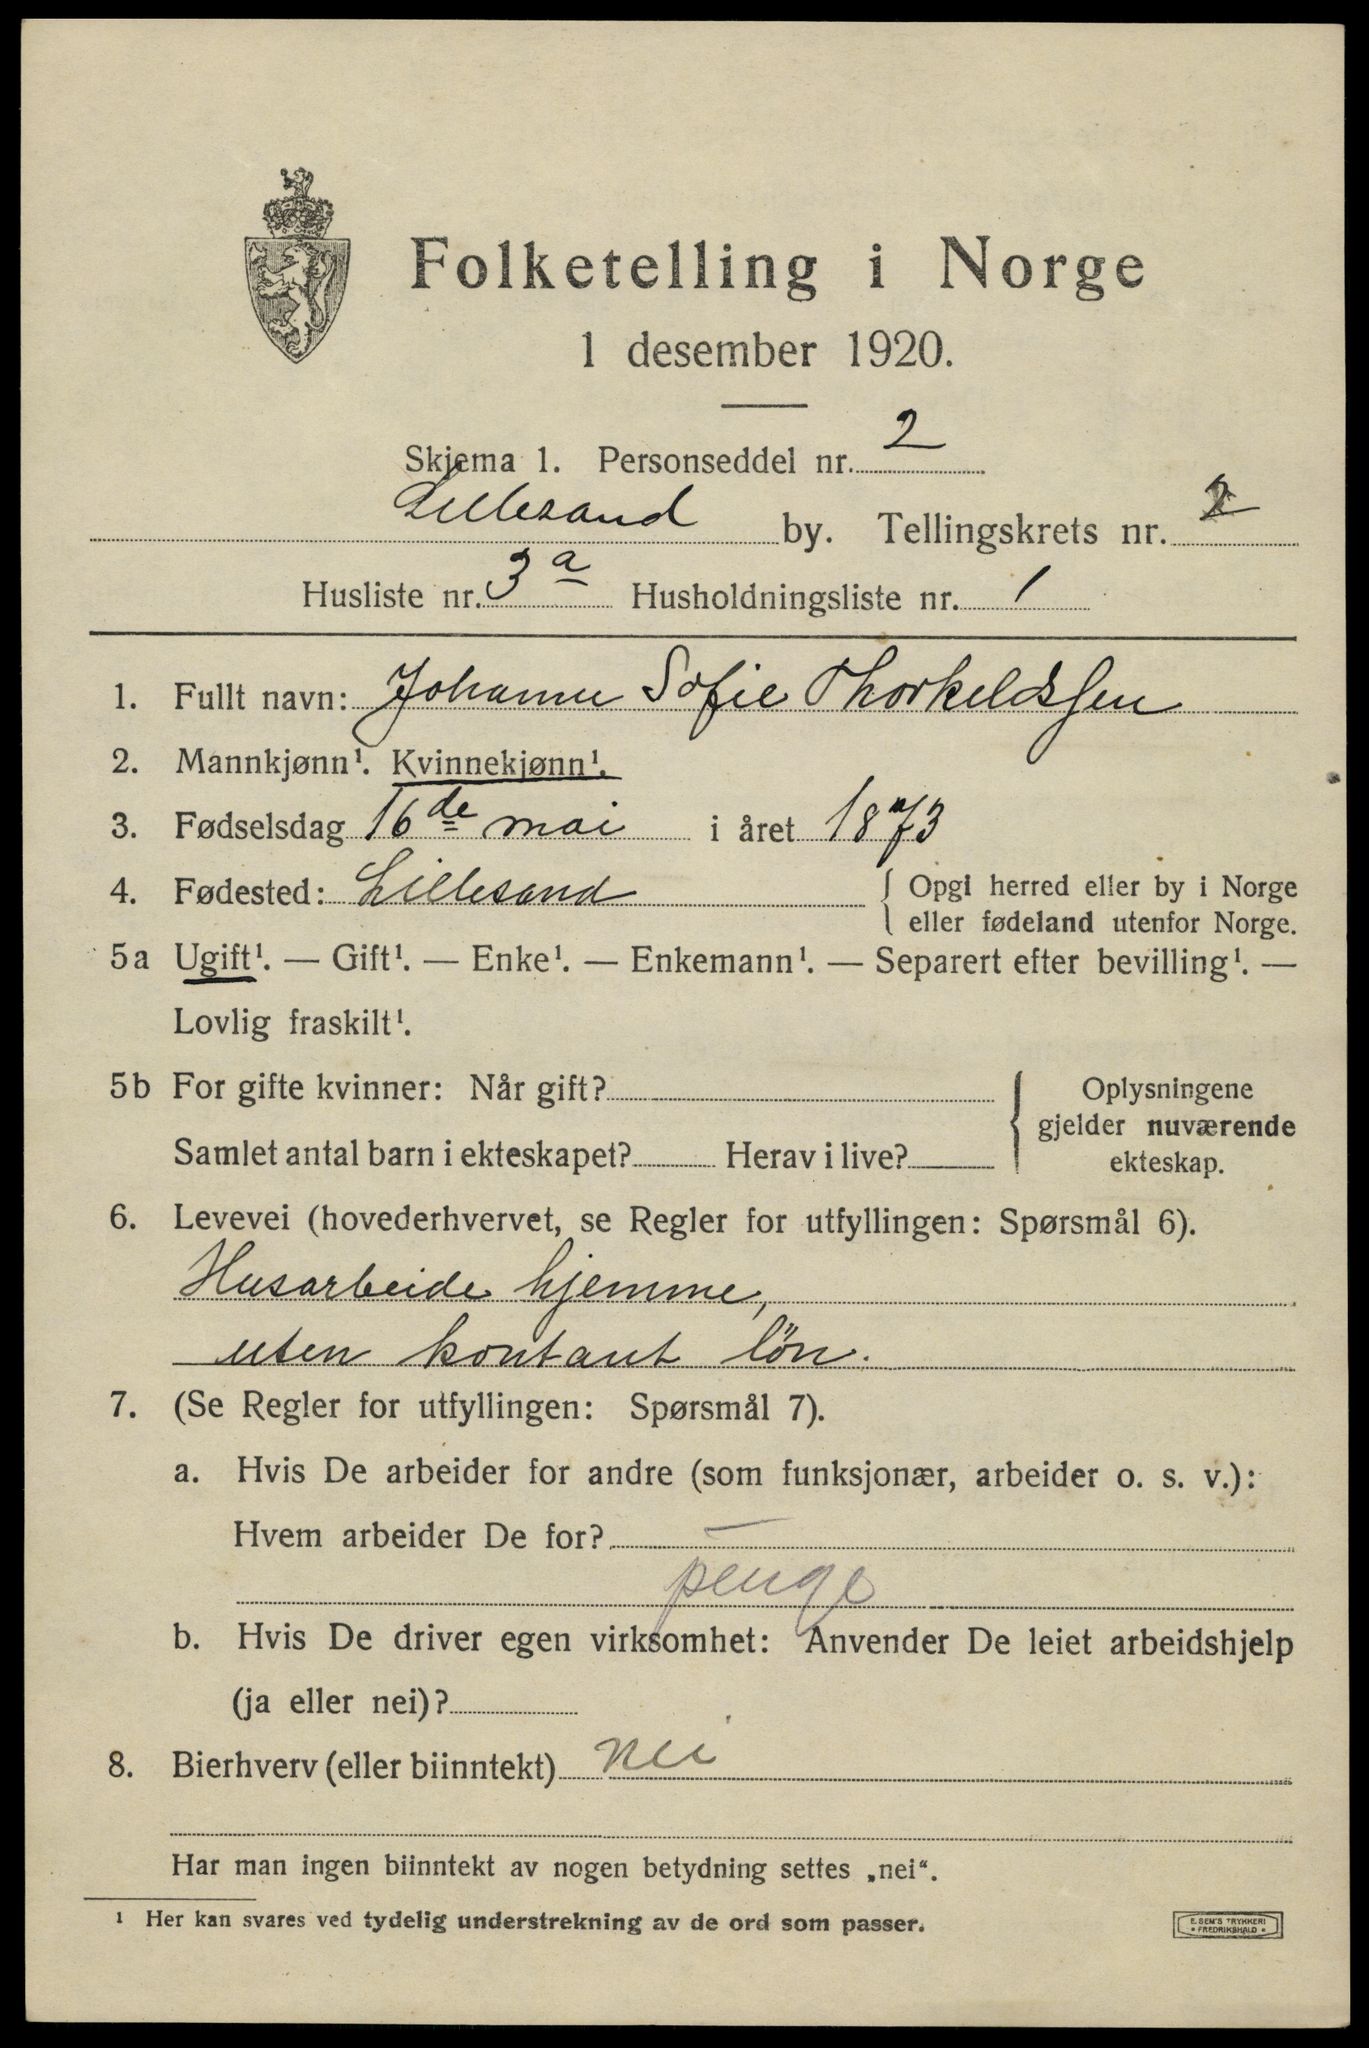 Folketelling i Norge
1 desember 1920.
Skjema 1. Personseddel nr. 2
Lillesand by. Tellingskrets nr. 2
Husliste nr. 3 a Husholdningsliste nr. 1
1. Fullt navn: Johanne Sofie Thorkeldsen
2. Mannkjønn¹. Kvinnekjønn¹.
3. Fødselsdag 16de mai i året 1873
4. Fødested: Lillesand { Opgi herred eller by i Norge
eller fødeland utenfor Norge.
5a Ugift¹. — Gift¹. — Enke¹. — Enkemann¹. — Separert efter bevilling¹. —
Lovlig fraskilt¹.
5b For gifte kvinner: Når gift? { Oplysningene
gjelder nuværende
Samlet antal barn i ekteskapet? Herav i live? ekteskap.
6. Levevei (hovederhvervet, se Regler for utfyllingen: Spørsmål 6).
Husarbeide hjemme,
uten kontant lön.
7. (Se Regler for utfyllingen: Spørsmål 7).
a. Hvis De arbeider for andre (som funksjonær, arbeider o. s. v.):
Hvem arbeider De for? —
penge
b. Hvis De driver egen virksomhet: Anvender De leiet arbeidshjelp
(ja eller nei)?
8. Bierhverv (eller biinntekt) nei
Har man ingen biinntekt av nogen betydning settes „nei“.
¹ Her kan svares ved tydelig understrekning av de ord som passer.
E. SEM'S TRYKKERI
• FREDRIKSHALD •